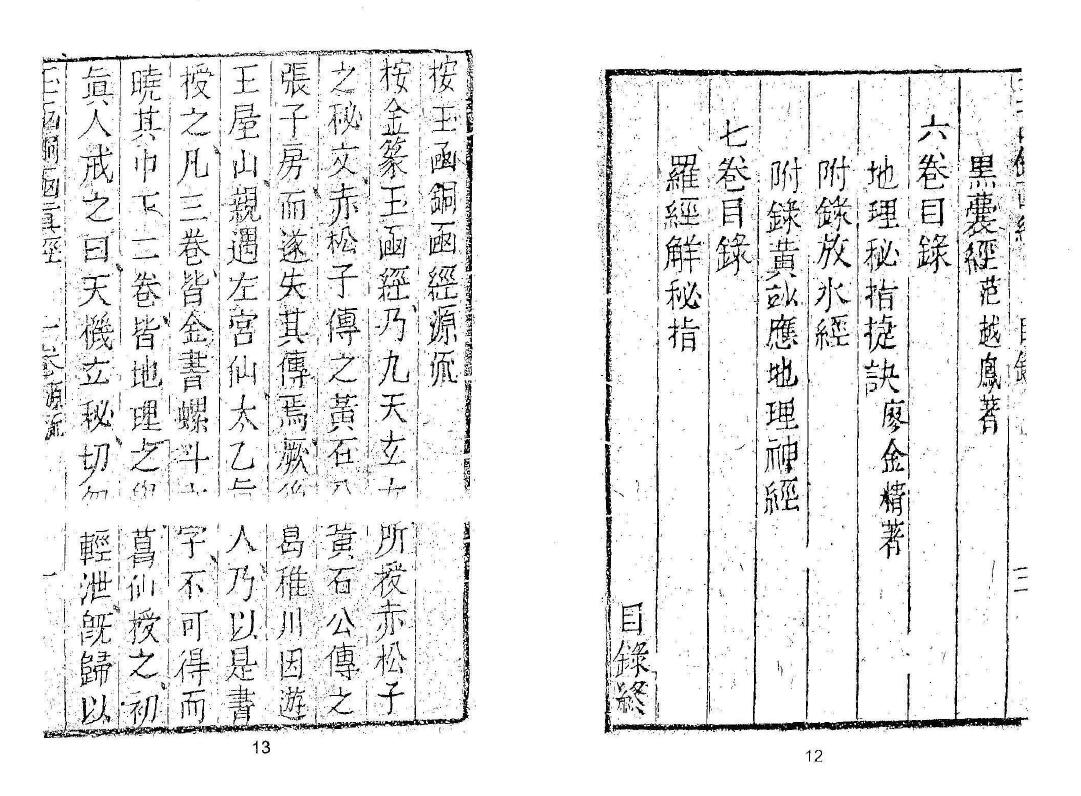 黑囊經 范越鳳著
六卷目錄
地理秘指捷訣 廖金精著
附錄放水經
附錄黃玅應地理神經
七卷目錄
羅經解秘指
目錄終
12
按玉函銅函經源流
按金篆玉函經乃九天玄女所授赤松子
之秘文赤松子傳之黃石公黃石公傳之
張子房而遂失其傳焉厥後葛稚川因遊
王屋山親遇左宮仙太乙真人乃以是書
授之凡三卷皆金書螺斗文字不可得而
曉其中下二卷皆地理之學葛仙授之初
眞人戒之曰天機玄秘切勿輕泄既歸以
玉函銅函真經 一卷源流 一
13